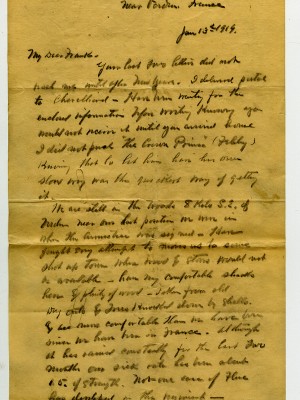 Near Verdun France
Jan 13th 1919.
My Dear Frank:-
Your last two letters did not
reach me until after New Years. I delivered
to - Have been waiting for the
enclosed information before writing knowing you
would not receive it until you arrived home
I did not push the Crown Prince
Knowing that to let him have his own
slow way was the quickest way of getting
it.
We are still in the woods 8 Kilo S.E. of
Verdun near our last position we were in
when the armistice was signed - I have
fought every attempt to move us to some
shot up town where wood & stove would not
be available - have my comfortable shacks
here & plenty of wood - taken from old
dug outs & trees knocked down by shells
& are more comfortable than we have been
since we have been in France. Although
it has rained constantly for the last two
months our sick rate has been about
of strength. Not one case of Flue
has developed in the regiment -